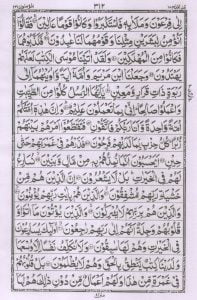 ٣١٢
اِلٰى فِرْعَوْنَ وَمَلَا۟ئِهٖ فَاسْتَكْبَرُوْا وَكَانُوْا قَوْمًا عَالِيْنَ ۚ فَقَالُوْۤا
اَنُؤْمِنُ لِبَشَرَيْنِ مِثْلِنَا وَقَوْمُهُمَا لَنَا عٰبِدُوْنَ ۚ فَكَذَّبُوْهُمَا
فَكَانُوْا مِنَ الْمُهْلَكِيْنَ وَلَقَدْ اٰتَيْنَا مُوْسَى الْكِتٰبَ لَعَلَّهُمْ
يَهْتَدُوْنَ وَجَعَلْنَا ابْنَ مَرْيَمَ وَاُمَّهٗۤ اٰيَةً وَّاٰوَيْنٰهُمَاۤ اِلٰى
رَبْوَةٍ ذَاتِ قَرَارٍ وَّمَعِيْنٍ يٰۤاَيُّهَا الرُّسُلُ كُلُوْا مِنَ الطَّيِّبٰتِ
وَاعْمَلُوْا صَالِحًا اِنِّىْ بِمَا تَعْمَلُوْنَ عَلِيْمٌ وَاِنَّ هٰذِهٖۤ اُمَّتُكُمْ
اُمَّةً وَّاحِدَةً وَّاَنَا رَبُّكُمْ فَاتَّقُوْنِ فَتَقَطَّعُوْۤا اَمْرَهُمْ بَيْنَهُمْ
زُبُرًا كُلُّ حِزْبٍۭ بِمَا لَدَيْهِمْ فَرِحُوْنَ فَذَرْهُمْ فِىْ غَمْرَتِهِمْ حَتّٰى
حِيْنٍ اَيَحْسَبُوْنَ اَنَّمَا نُمِدُّهُمْ بِهٖ مِنْ مَّالٍ وَّبَنِيْنَ نُسَارِعُ
لَهُمْ فِى الْخَيْرٰتِ بَلْ لَّا يَشْعُرُوْنَ اِنَّ الَّذِيْنَ هُمْ مِّنْ
خَشْيَةِ رَبِّهِمْ مُّشْفِقُوْنَ وَالَّذِيْنَ هُمْ بِاٰيٰتِ رَبِّهِمْ يُؤْمِنُوْنَ
وَالَّذِيْنَ هُمْ بِرَبِّهِمْ لَا يُشْرِكُوْنَ وَالَّذِيْنَ يُؤْتُوْنَ مَاۤ اٰتَوْا
وَّقُلُوْبُهُمْ وَجِلَةٌ اَنَّهُمْ اِلٰى رَبِّهِمْ رٰجِعُوْنَ اُولٰٓئِكَ يُسٰرِعُوْنَ
فِى الْخَيْرٰتِ وَهُمْ لَهَا سٰبِقُوْنَ وَلَا نُكَلِّفُ نَفْسًا اِلَّا وُسْعَهَا
وَلَدَيْنَا كِتٰبٌ يَّنْطِقُ بِالْحَقِّ وَهُمْ لَا يُظْلَمُوْنَ بَلْ قُلُوْبُهُمْ
فِىْ غَمْرَةٍ مِّنْ هٰذَا وَلَهُمْ اَعْمَالٌ مِّنْ دُوْنِ ذٰلِكَ هُمْ لَهَا